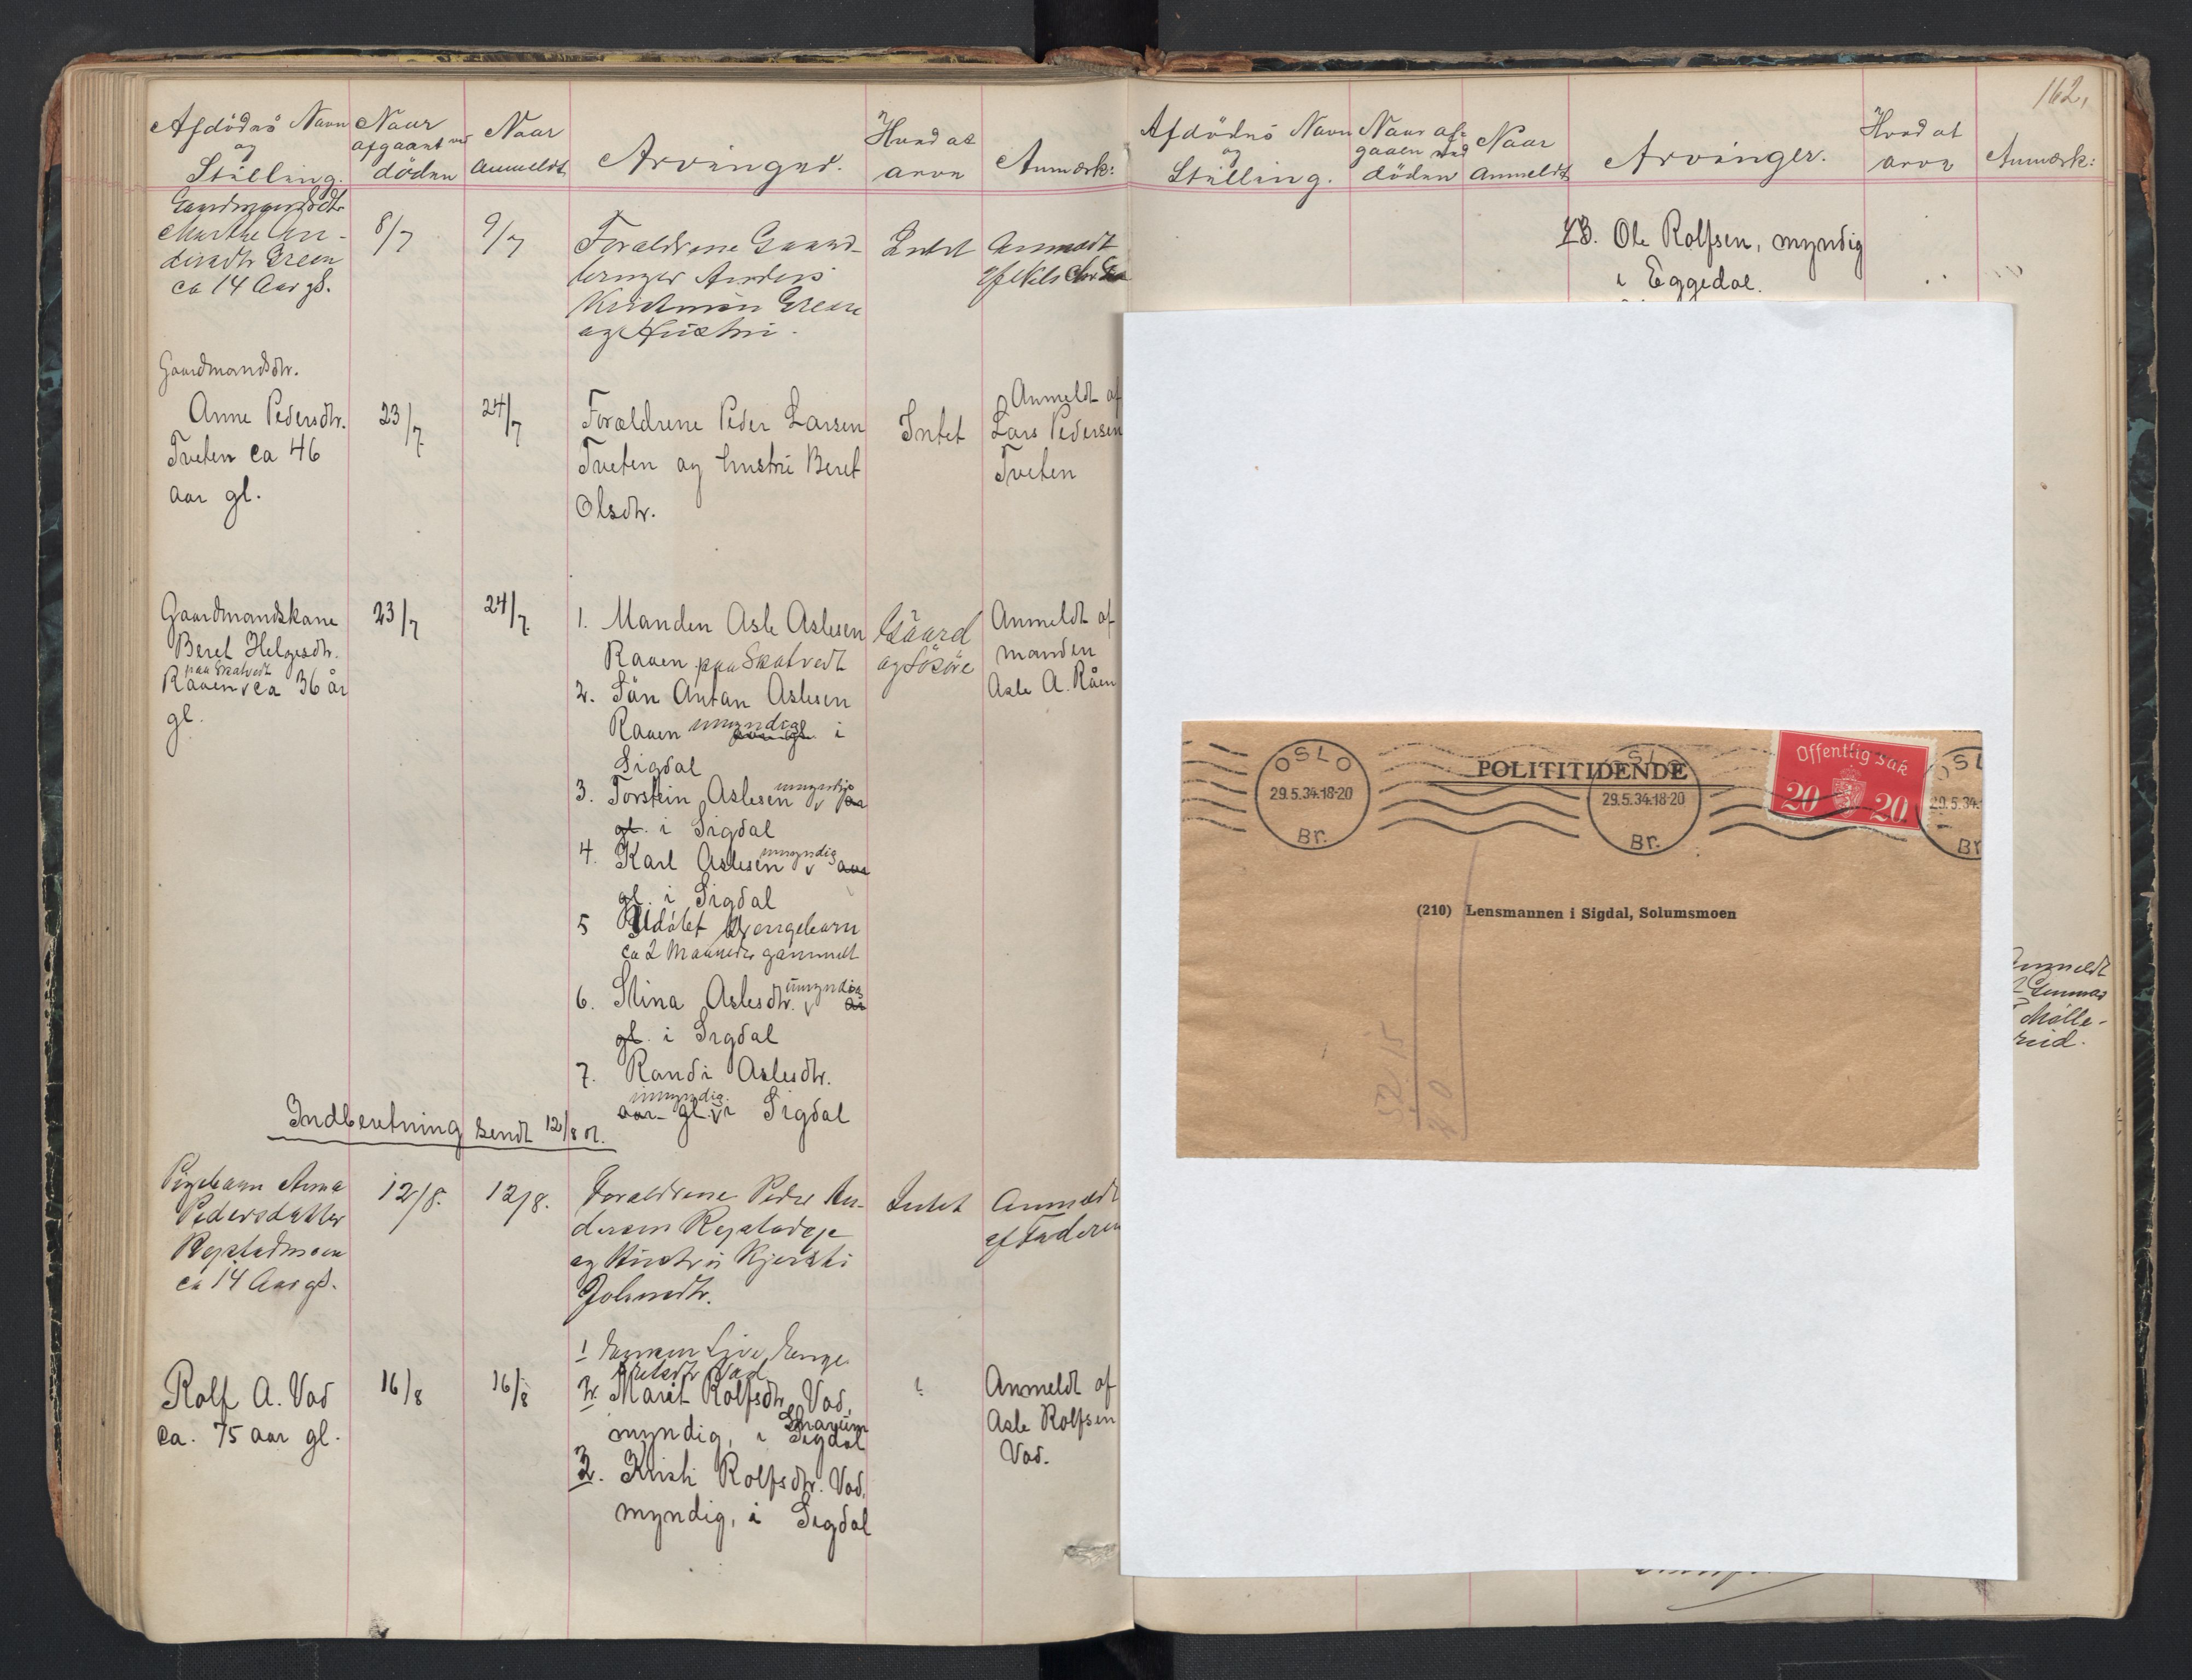 Afdødes Navn
og
Stilling.
Naar
afgaaet ved
døden
Naar
Anmeldt
Arvinger.
Hvad at
arve
Anmærk:
Marthe An-
dersdtr Green
ca 14 Aar gl.
8/7
9/7
Forældrene Gaard-
bruger Anders
Kristensen Green
og Hustru.
Intet
Anmeldt
af
Gaardmandsdtr.
Anne Pedersdtr.
Tveten ca 46
aar gl.
23/7
24/7
Forældrene Peder Larsen
Tveten og hustru Beret
Olsdtr.
Intet
Anmeldt af
Lars Pedersen
Tveten
Gaardmandskone
Beret Helgesdtr.
paa Skatvedt
Raaen ca 36 år
gl.
23/7
24/7
1. Manden Asle Aslesen
Raaen paa Skatvedt
2. Søn Anton Aslesen
Raaen umyndig i
Sigdal
3. Torstein Aslesen umyndig aar
gl. i Sigdal
4. Karl Aslesen umyndig aar
gl. i Sigdal
5 Udøbt Drengebarn
ca 2 Maaneder gammelt
6. Stina Aslesdtr. umyndig aar
gl. i Sigdal
7. Randi Aslesdtr.
umyndig
aar gl. i Sigdal
Gaard
og Løsøre
Anmeldt af
manden
Asle A. Råen
Indberetning sendt 12/8 01.
Pigebarn Anna
Pedersdatter
ca 14 Aar gl.
12/8.
12/8.
Forældrene Peder An-
dersen
og Hustru Kjersti
Intet
Anmeldt
af Faderen
Rolf A. Vad
ca. 75 aar gl.
16/8
16/8
1 Enken Live Enge-
bretsdtr Vad
2. Marit Rolfsdtr. Vad,
myndig, i Sigdal
3. Kristi Rolfsdtr. Vad,
myndig, i Sigdal
Anmeldt af
Asle Rolfsen
Vad.
162.
Afdødes Navn
og
Stilling.
Naar af-
gaaen ved
døden
Naar
Anmeldt
Arvinger.
Hvad at
arve
Anmærk:
43. Ole Rolfsen, myndig
i Eggedal.
OSLO
29.5.34.18-20
Br.
POLITITIDENDE
OSLO
29.5.34.18-20
Br.
Offentlig sak
20 20
OSL
29.5.34.
Br
(210) Lensmannen i Sigdal, Solumsmoen
52 15
Anmeldt
Gunnar
Mølle-
rud.